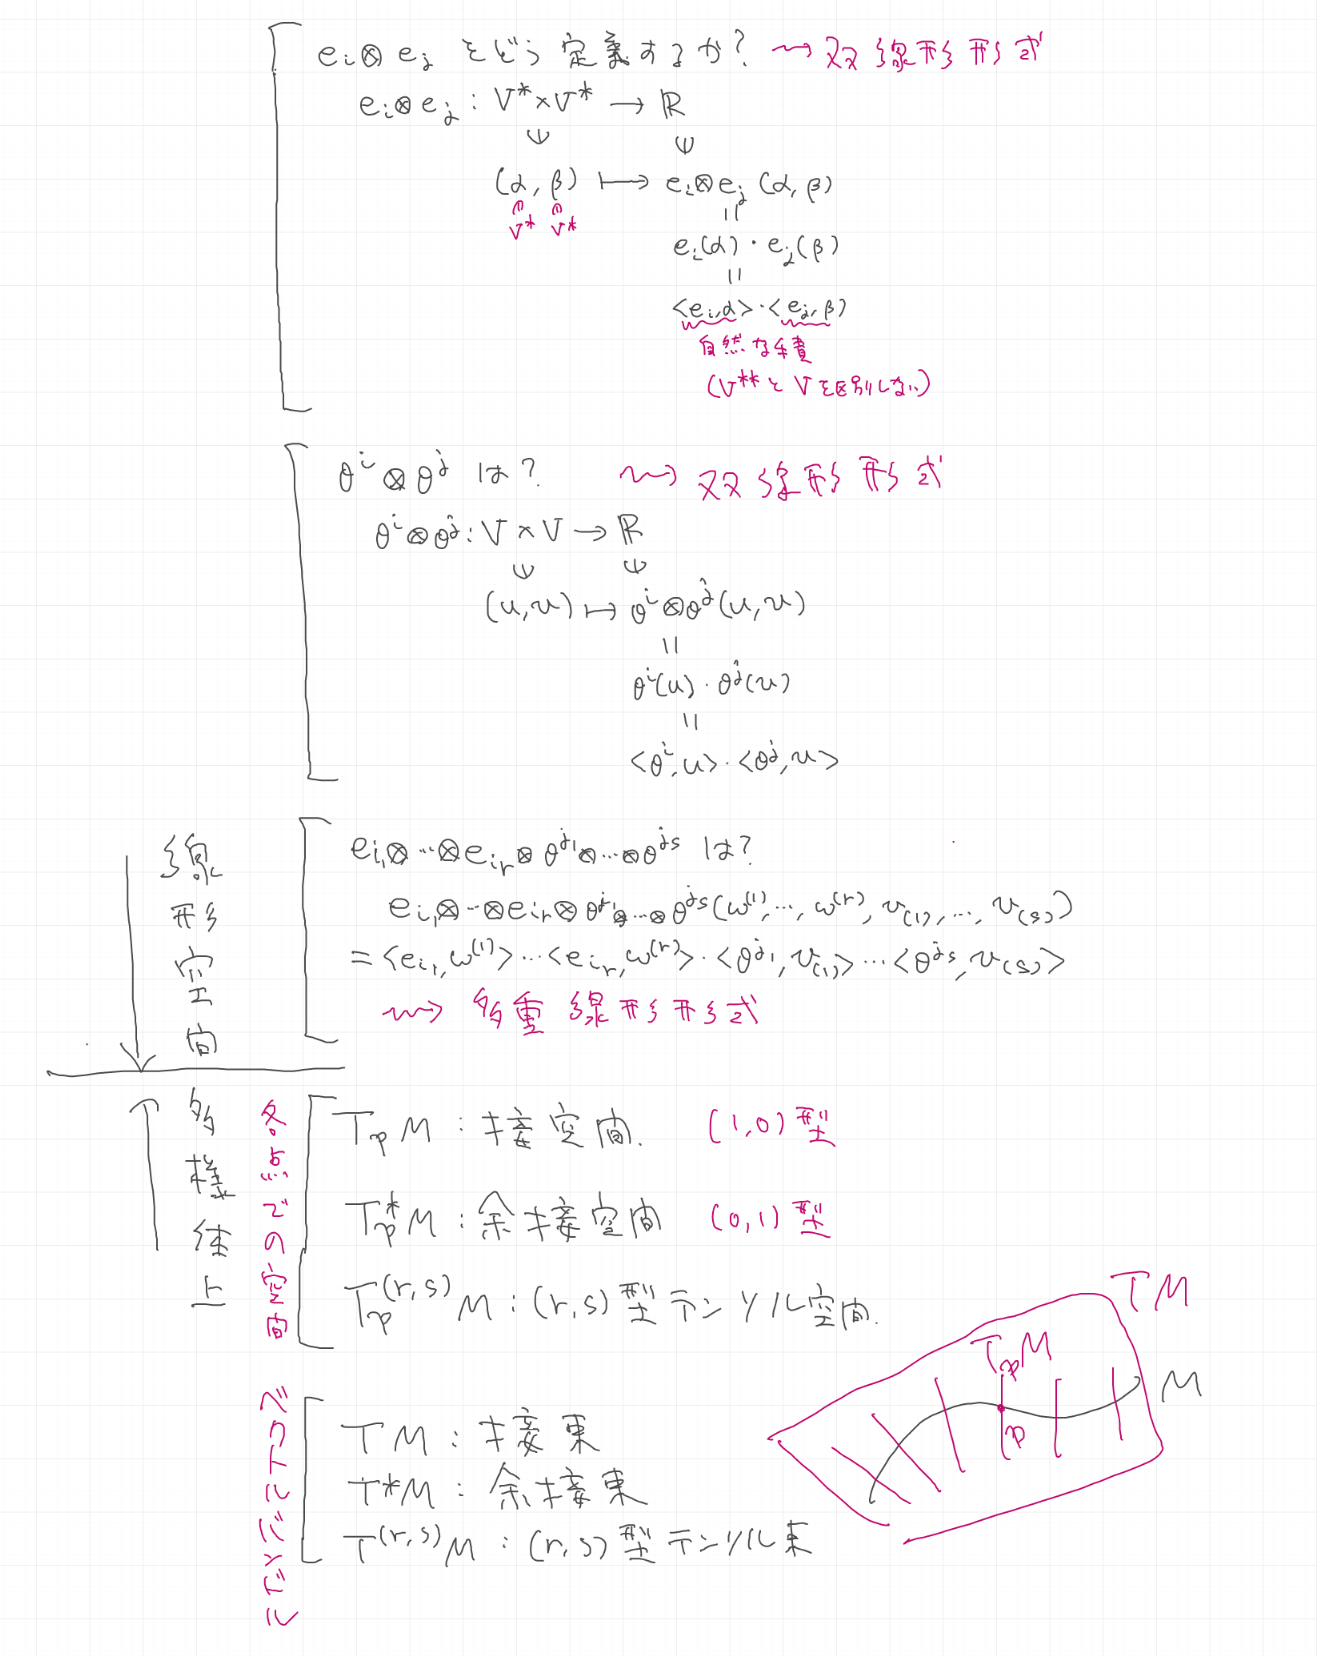 e_i⊗e_j をどう定義するか? ⇝ 双線形形式
e_i⊗e_j : V*×V* → ℝ
(α, β) ↦ e_i⊗e_j (α, β)
V* V*
=
e_i(α)・e_j(β)
=
<e_i, α>・<e_j, β>
自然な積
(V**とVを区別しない)
θ^i⊗θ^j は? ⇝ 双線形形式
θ^i⊗θ^j : V×V → ℝ
(u, v) ↦ θ^i⊗θ^j(u, v)
=
θ^i(u)・θ^j(v)
=
<θ^i, u>・<θ^j, v>
線形空間
e_{i_1}⊗…⊗e_{i_r}⊗θ^{j_1}⊗…⊗θ^{j_s} は?
e_{i_1}⊗…⊗e_{i_r}⊗θ^{j_1}⊗…⊗θ^{j_s}(ω^{(1)}, …, ω^{(r)}, v_{(1)}, …, v_{(s)})
= <e_{i_1}, ω^{(1)}>…<e_{i_r}, ω^{(r)}>・<θ^{j_1}, v_{(1)}>…<θ^{j_s}, v_{(s)}>
⇝ 多重線形形式
多様体上
各点での空間
T_pM : 接空間. (1,0)型
T_p*M : 余接空間 (0,1)型
T_p^{(r,s)}M : (r,s)型テンソル空間.
ベクトルバンドル
TM : 接束
T*M : 余接束
T^{(r,s)}M : (r,s)型テンソル束
TM
T_pM
M
p